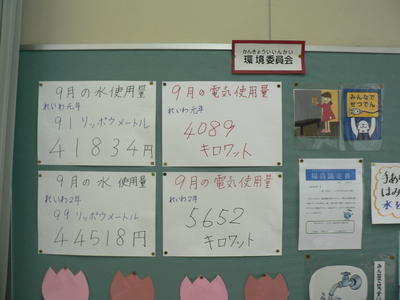 かんきょういいんかい
環境委員会
9月の水使用量
れいわ元年
91リッポウメートル
41834円
9月の電気使用量
れいわ元年
4089
キロワット
みんなで
せつでん
9月の水 使用量
れいわ2年
99リッポウメートル
44518円
9月の電気使用量
れいわ2年
5652
キロワット
手あ
はみ
水を